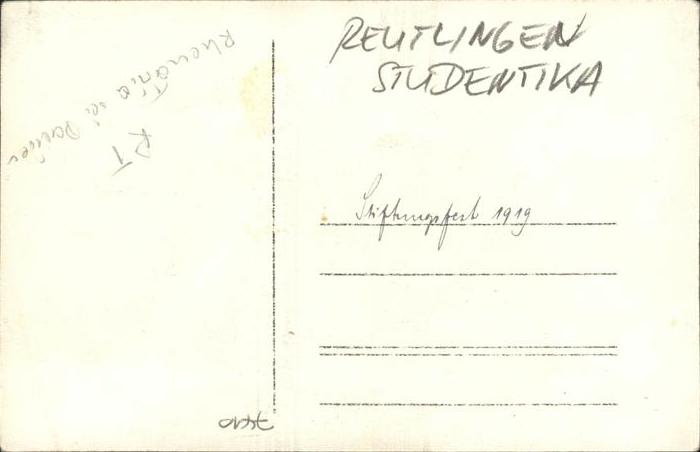 REUTLINGEN
STUDENTIKA
Stiftungsfest 1919
Rhenania
RT